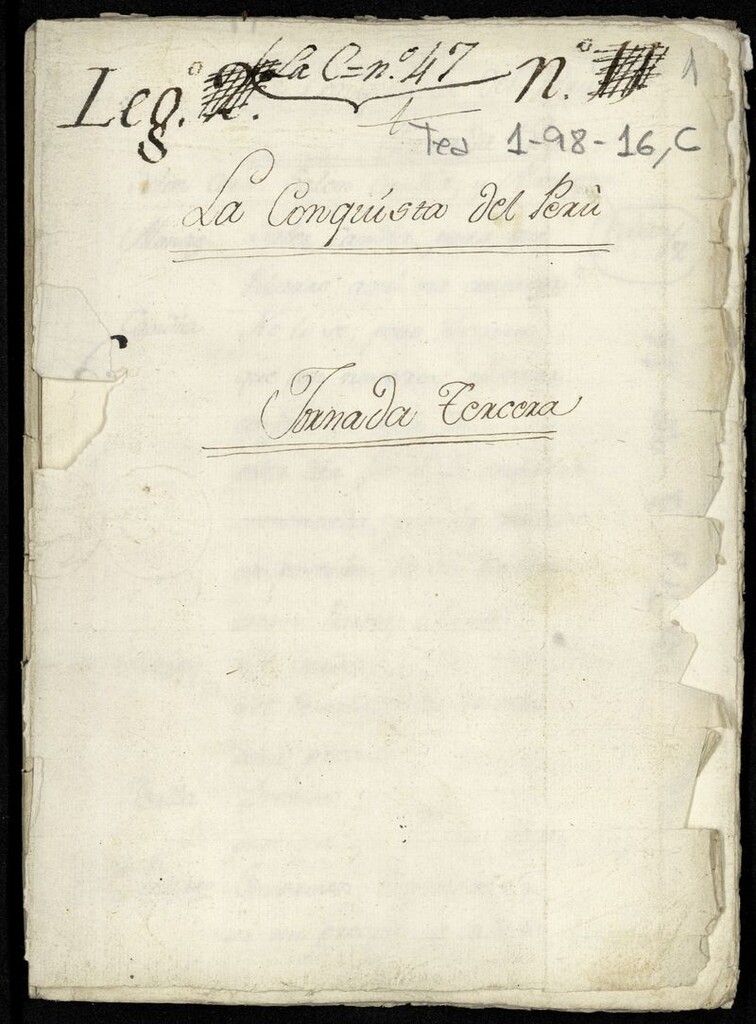 La C=n.º 47
Leg.º n.º 1
1
Tea 1-98-16, C
La Conquista del Perù
Jornada Tercera